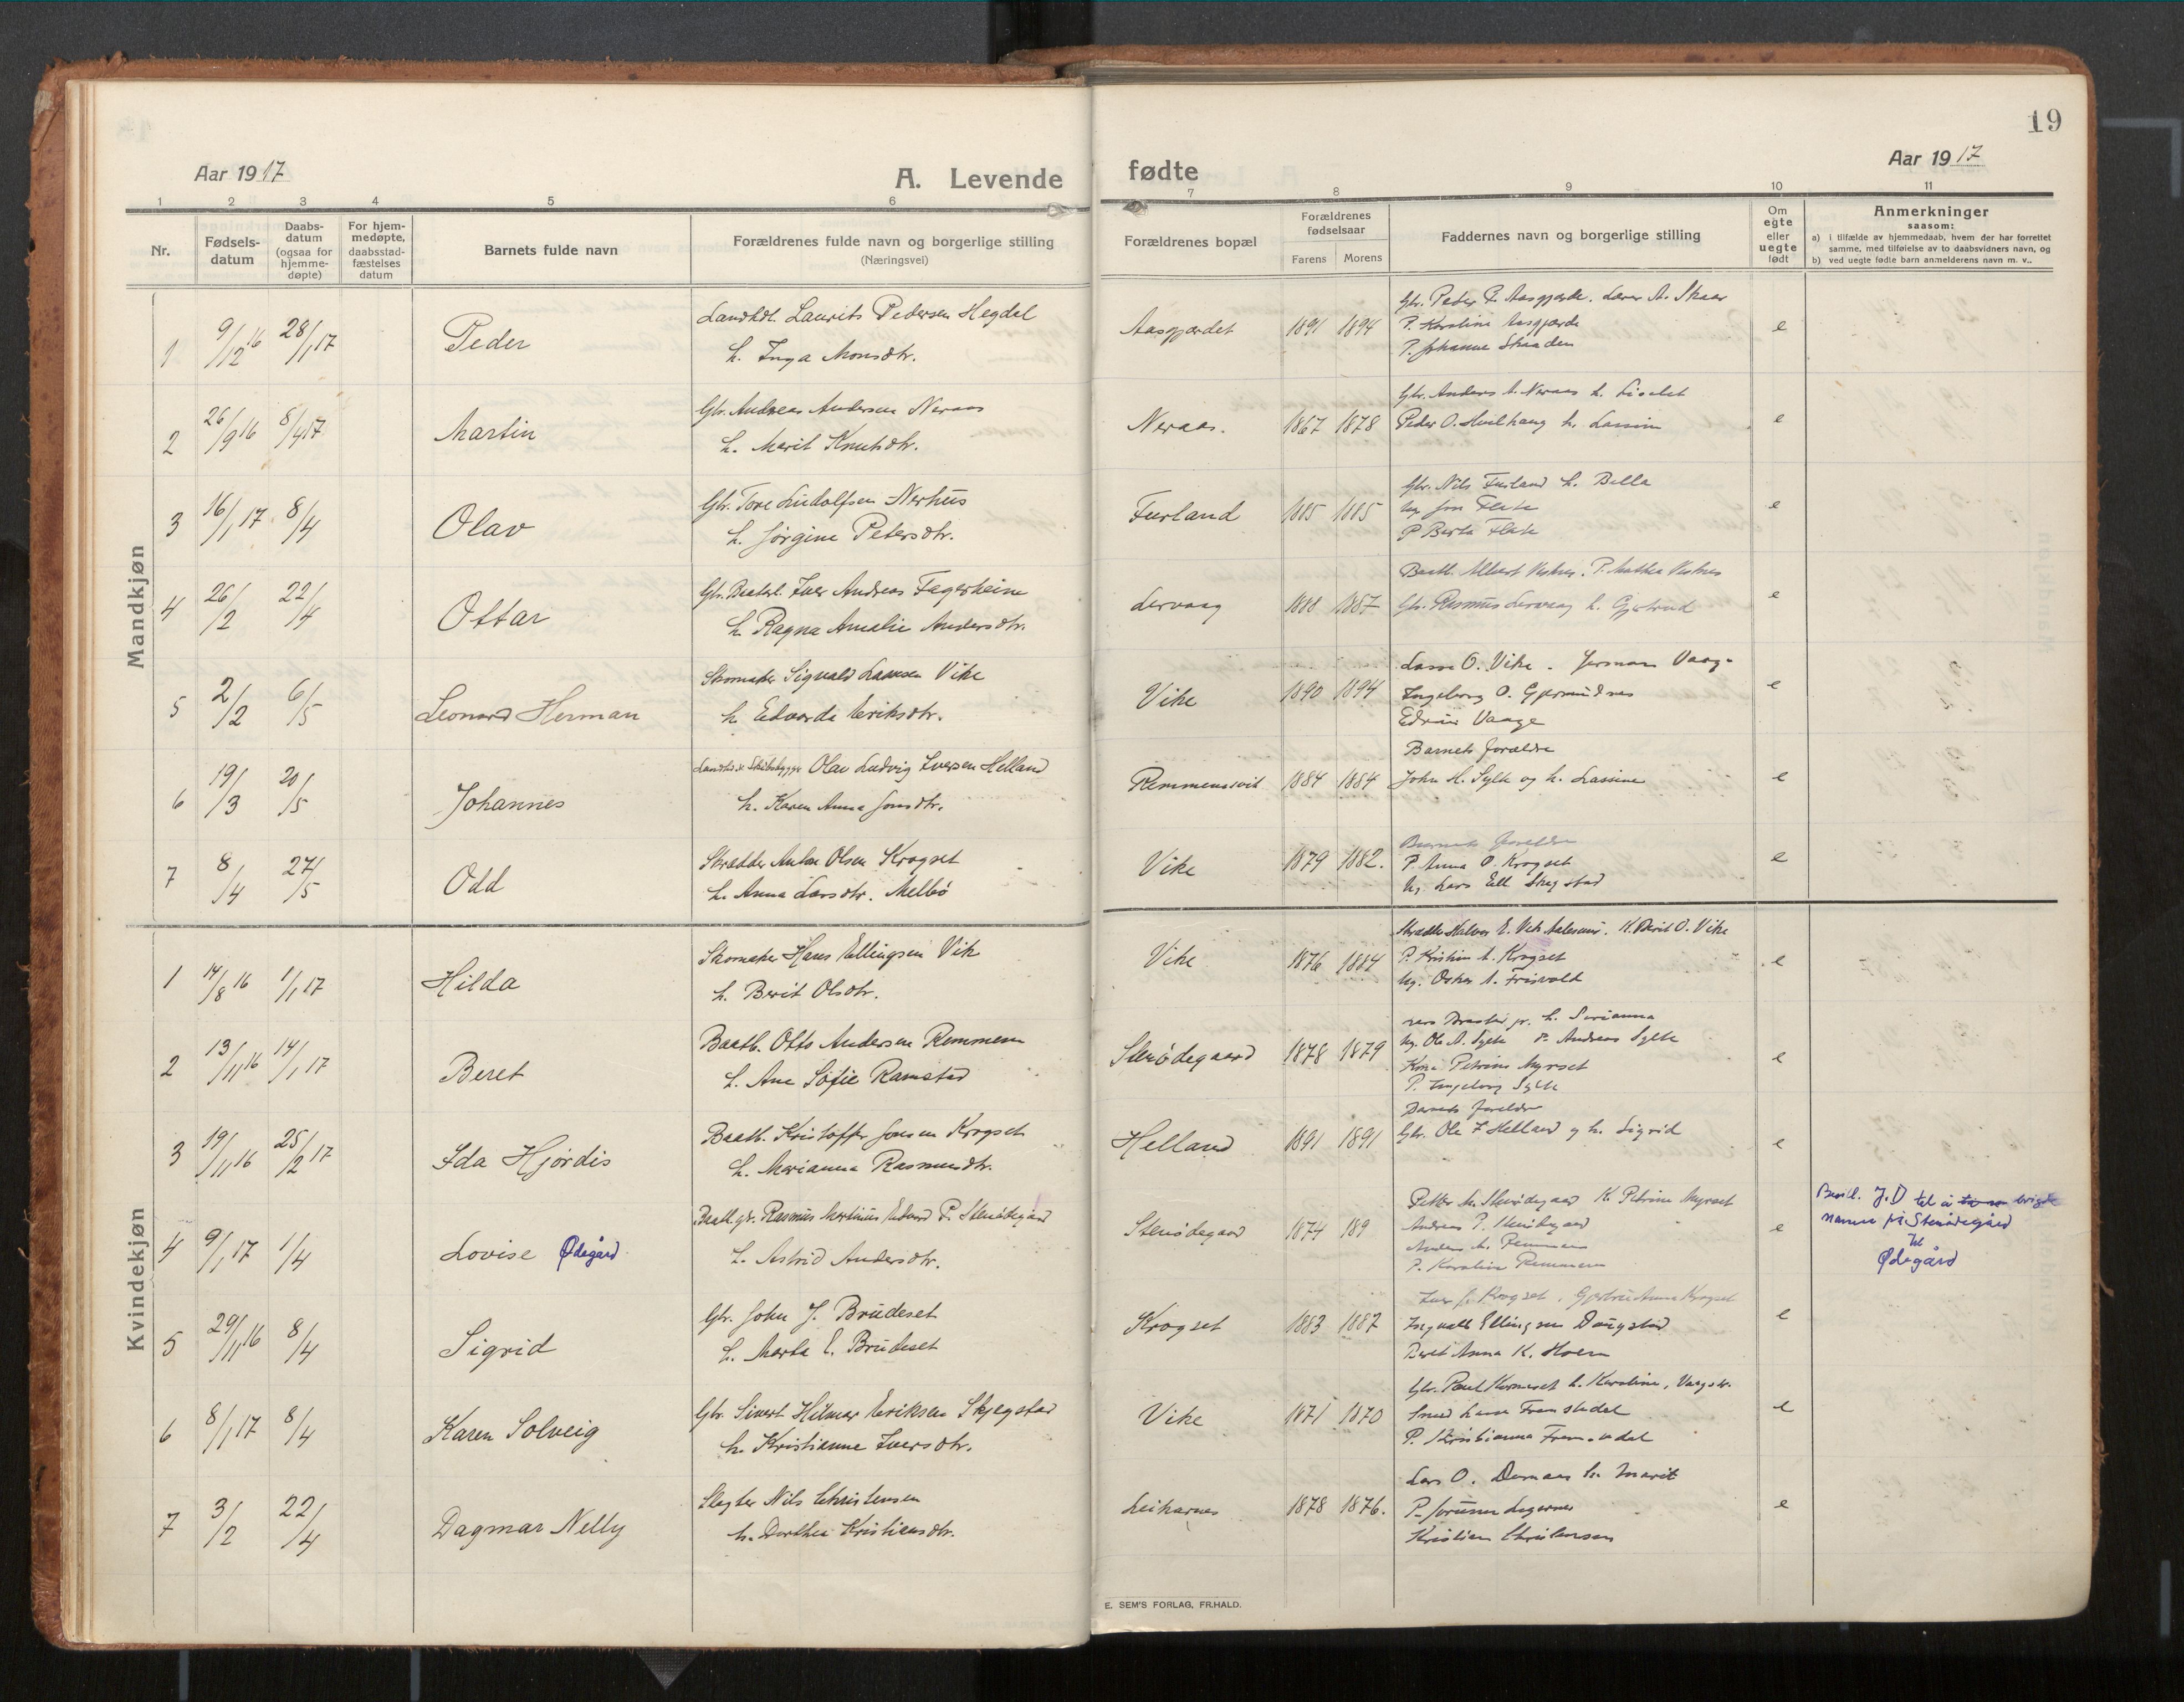 19
Aar 1917
A. Levende
fødte
Aar 1917
1 2 3 4 5 6 7 8 9 10 11
Nr.
Fødsels-
datum
Daabs-
datum
(ogsaa for
hjemme-
døpte)
For hjem-
medøpte,
daabsstad-
fæstelses
datum
Barnets fulde navn
Forældrenes fulde navn og borgerlige stilling
(Næringsvei)
Forældrenes bopæl
Forældrenes
fødselsaar
Farens Morens
Faddernes navn og borgerlige stilling
Om
egte
eller
uegte
født
Anmerkninger
saasom:
a) i tilfælde av hjemmedaab, hvem der har forrettet
samme, med tilføielse av to daabsvidners navn, og
b) ved uegte fødte barn anmelderens navn m. v..
Mandkjøn
1 9/12 16 28/1 17 Peder
Landhdl. Laurits Pedersen Hegdal
h. Inga Monsdtr.
Aasgjærdet 1891 1894
Gbr. Peder P. Aasgjærde. Lærer A. Skaar
P. Karoline Aasgjærde
P. Johanne Skaaden
e
2 26/9 16 8/4 17 Martin
Gbr. Andreas Andersen Neraas
h. Marit Knutsdtr.
Neraas. 1867 1878
Gbr. Anders A. Neraas h. Liselet
Peder O. Hvilhaug h. Lassine
e
3 16/1 17 8/4 Olav
Gbr. Tore Ludolfsen Nerhus
h. Jørgine Petersdtr.
Furland 1885 1885
Gbr. Nils Furland h. Bella
Ug Jon Flate
P Berta Flate
e
4 26/2 22/4 Ottar
Gbr. Baatb. Iver Andreas Fagerheim
h. Ragna Amalie Andersdtr.
Lervaag 1888 1887
Gbr. Rasmus Lervaag h. Gjertrud
e
5 2/2 6/5 Leonard Herman
Skomaker Sigvald Larsen Vike
h. Edvarda Eriksdtr.
Vike 1890 1894
Lasse O. Vike. Herman Vaage
Ingeborg O. Gjermundnes
Edvin Vaage
e
6 19/3 20/5 Johannes
Landhd. & Skibsbygger Olav Ludvig Iversen Helland
h. Karen Anna Jonsdtr.
Remmensvik 1884 1884
Barnets forældre
John H. Sylte og h. Lassine
e
7 8/4 27/5 Odd
Skrædder Anton Olsen Krogset
h. Anna Larsdtr. Melbø
Vike 1879 1882.
Barnets forældre
P Anna O. Krogset
Ug. Lars Ell Skegstad
e
Kvindekjøn
1 14/8 16 1/1 17 Hilda
Skomaker Hans Ellingsen Vik
h. Berit Olsdtr.
Vike 1876 1884
P. Kristine A. Krogset
Ug. Oskar A. Frisvold
e
2 13/11 16 14/1 17 Beret
Baatb. Otto Andersen Remmem
h. Ane Sofie Ramstad
Stenødegaard 1878 1879
Ug. Ole A. Sylte P. Andreas Sylte
Kone Petrine Myrset
P. Ingeborg Sylte
e
3 19/11 16 25/2 17 Ida Hjørdis
Baatb. Kristoffer Jonsen Krogset
h. Marianna Rasmusdtr.
Helland 1891 1891
Barnets forældre
Gbr. Ole I Helland og h. Sigrid
e
4 9/1 17 1/4 Lovise Ødegård
Baatb. gbr. Rasmus Martinus Edvard P. Stenødegård
h. Astrid Andersdtr.
Stenødegaard 1874 189
Petter M. Stenødegaard K. Petrine Myrset
Andreas P. Stenødegaard
Anders A. Remmem
P. Karoline Remmem
e
Bevil. J.D til å brigde
namn frå Stenødegård
til
Ødegård
5 29/11 16 8/4 Sigrid
Gbr. John J. Brudeset
h. Marta E. Brudeset
Krogset 1883 1887
Iver J. Krogset. Gjertrud Anna Krogset
Ingvald Ellingsen Daugstad
Beret Anna K. Hoem
e
6 8/1 17 8/4 Karen Solveig
Gbr. Sivert Hilmar Eriksen Skjegstad
h. Kristianne Iversdtr.
Vike 1871 1870
Smed Lasse Framstedal
P. Kristianna Framstedal
e
7 3/2 22/4 Dagmar Nelly
Slagter Nils Christensen
h. Dorthea Kristiansdtr.
Leikarnes 1878 1876.
Lars O. Dernaas h. Marit
Kristian Christensen
e
E. SEM'S FORLAG, FR.HALD.